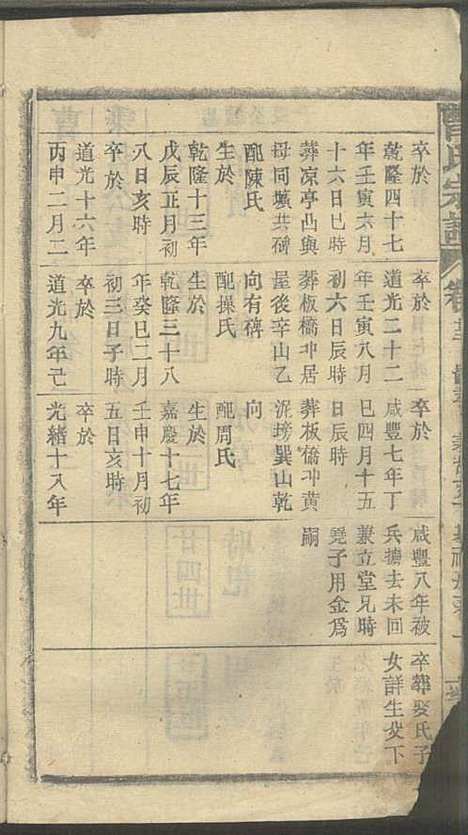 曹氏宗譜
卒於
乾隆四十七
年壬寅六月
十六日巳時
葬凉亭凸與
母同壙共碑
配陳氏
生於
乾隆十三年
戊辰正月初
八日亥時
卒於
道光十六年
丙申二月二
卒於
道光二十二
年壬寅八月
初六日辰時
葬板橋冲居
屋後辛山乙
向有碑
配操氏
生於
乾隆三十八
年癸巳二月
初三日子時
卒於
道光九年己
卒於
咸豐七年丁
巳四月十五
日辰時
葬板橋冲黄
泥塝巽山乾
向
配周氏
生於
嘉慶十七年
壬申十月初
五日亥時
卒於
光緒十八年
咸豐八年被
兵擄去未回
兼立堂兄時
尭子用金爲
嗣
卒葬娶氏子
女詳生殳下